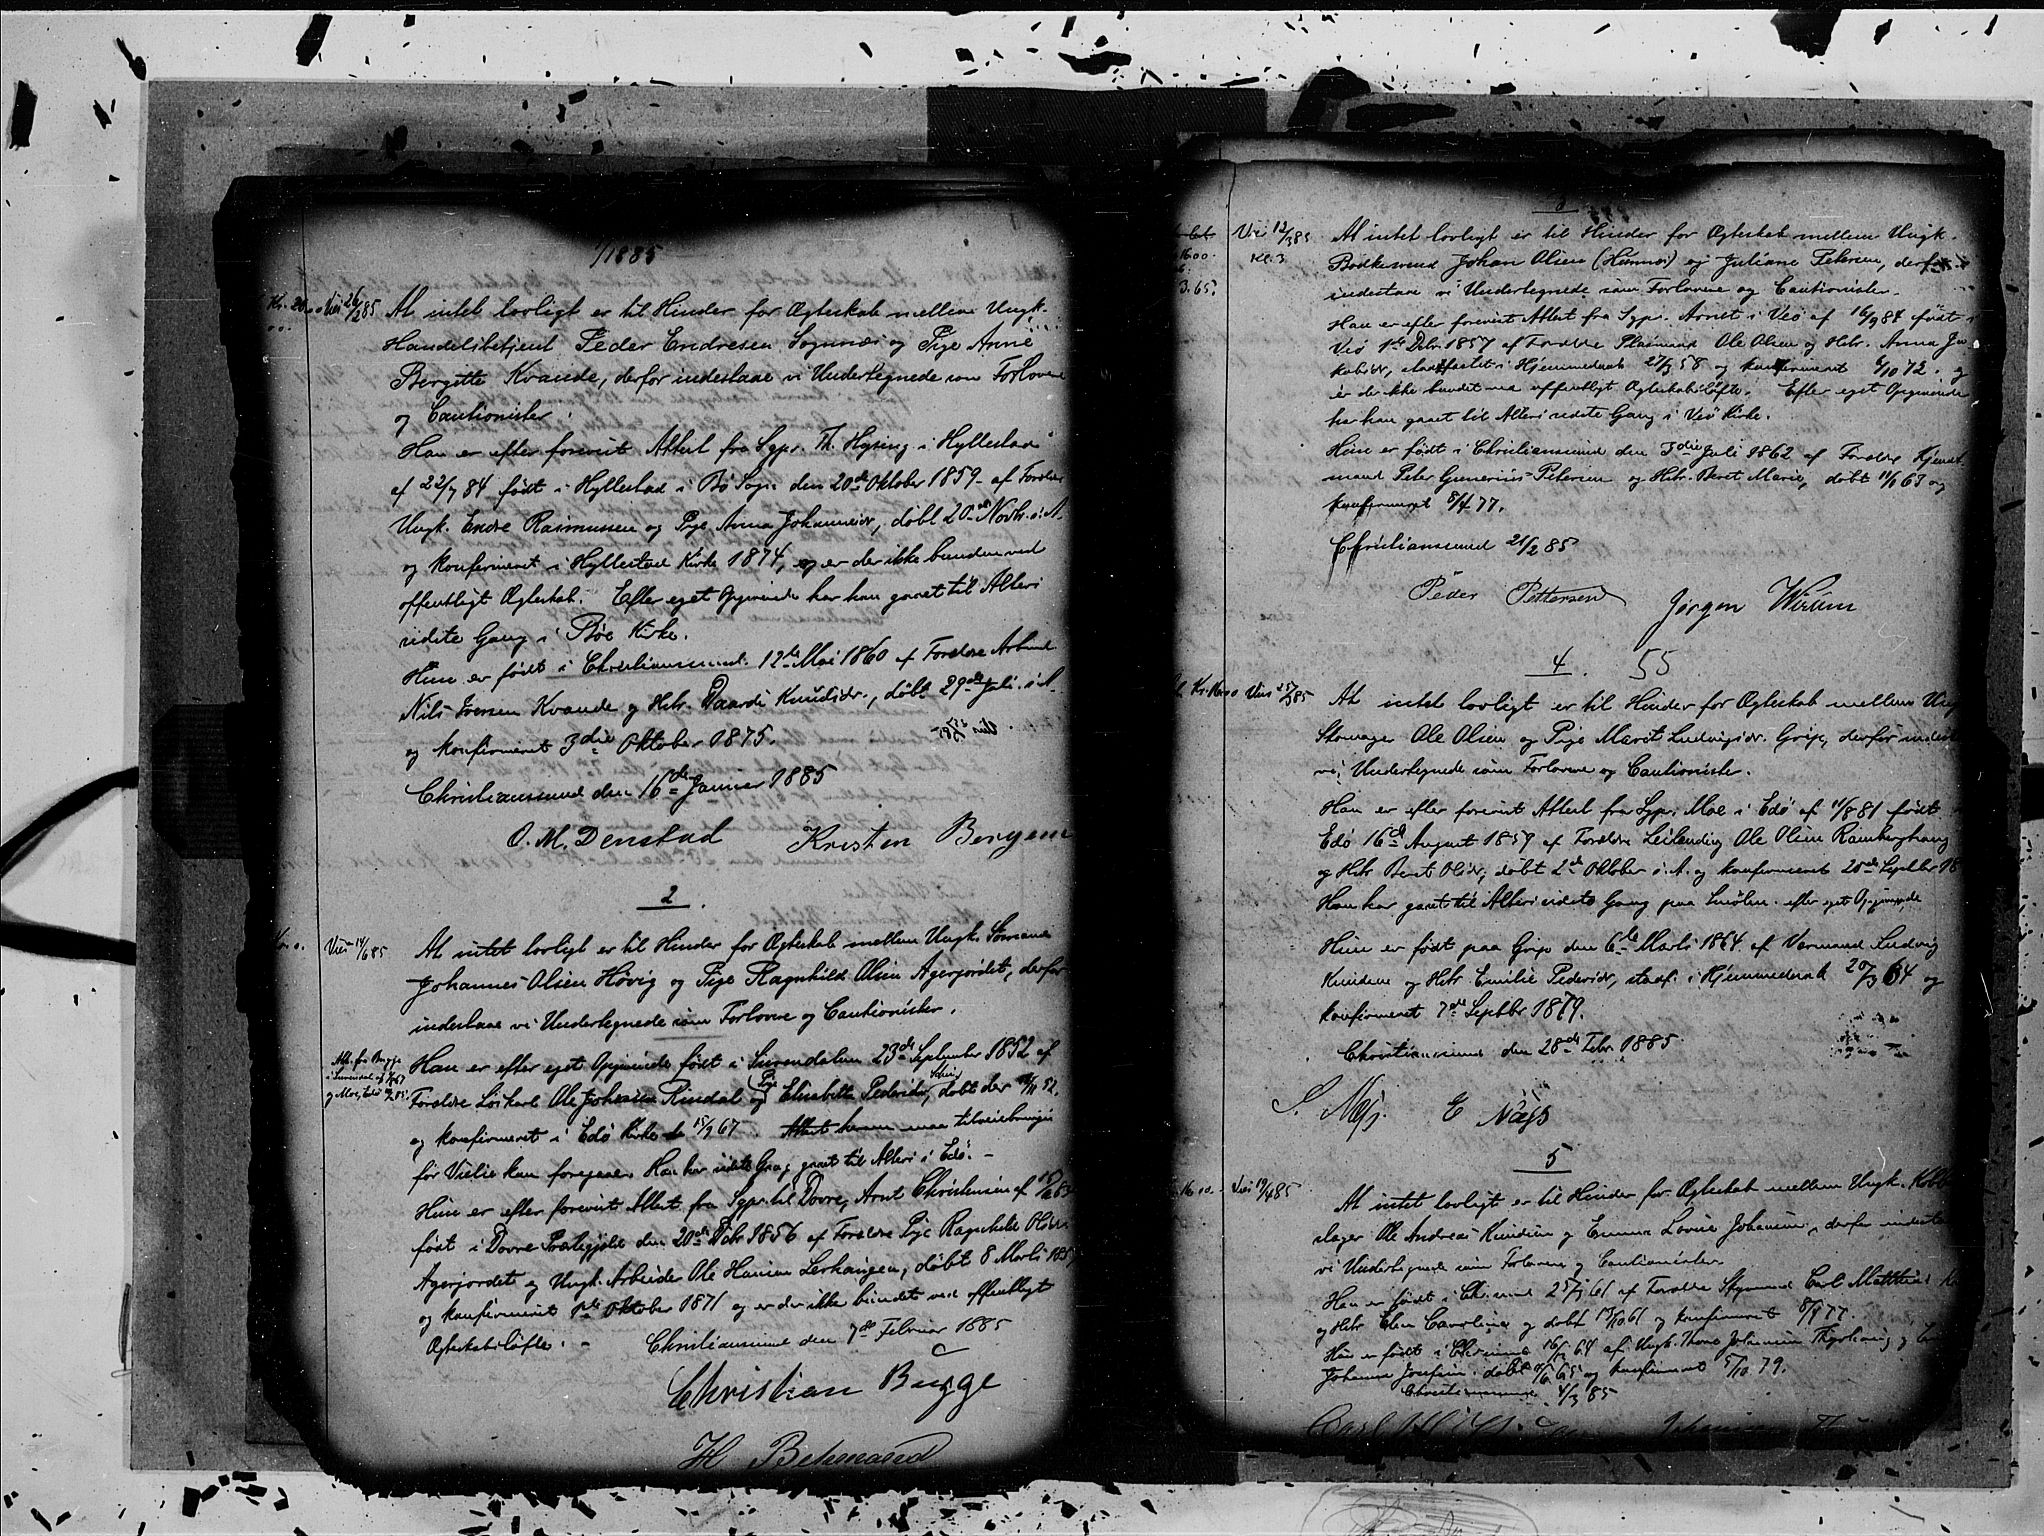 1/1885
Kr. 20.00 Viet 26/2 85
At intet lovligt er til Hinder for Ægteskab mellem Ungk.
Handelsbetjent Peder Endresen Sognnæs og Pige Anne
Bergitte Kvande, derfor indestaae vi Undertegnede som Forlovere
og Cautionister.
Han er efter forevist Attest fra Sgpr. Th. Hysing i Hyllestad
af 22/7 84 født i Hyllestad i Bø Sogn den 20de Oktober 1859 af Forældre
Ungk. Endre Rasmussen og Pige Anna Johannesdr, døbt 20de Novbr. s. A.
og konfirmeret i Hyllestad Kirke 1874, og er der ikke bunden ved
offentligt Ægteskab. Efter eget Opgivende har han gaaet til Alters
sidste Gang i Bøe Kirke.
Hun er født i Christianssund 12te Mai 1860 af Forældre Arbmd
Nils Iversen Kvande og Hstr. Daardi Knudsdr., døbt 29de Juli s. A.
og konfirmeret 3die Oktober 1875.
Christianssund den 16de Januar 1885
O. M. Denstad Kristen Bergem
2.
Viet 14/6 85
At intet lovligt er til Hinder for Ægteskab mellem Ungk. Sømand
Johannes Olsen Høvig og Pige Ragnhild Olsen Agerjordet, derfor
indestaae vi Undertegnede som Forlovere og Cautionister.
Att. fra Bugge
i Surendal af
og Moe, Edø
Han er efter eget Opgivende født i Surendalen 23de September 1852 af
Forældre Løskarl Ole Johnsen Rindal og Pige Elisabeth Pedersdr, døbt der
og konfirmeret i Edø Kirke 15/9 67. Attest herom maa tilveiebringes
før Vielse kan foregaae. Han har sidste Gang gaaet til Alters i Edø.
Hun er efter forevist Attest fra Sgpr. til Dovre, Arnt Christensen af
født i Dovre Præstegjæld den 20de Dcbr 1856 af Forældre Pige Ragnhild Olsdr
Agerjordet og Ungk. Arbeider Ole Hansen Lerhaugen, døbt 8 Marts 1857
og konfirmeret 1ste Oktober 1871 og er der ikke bundet ved offentligt
Ægteskabsløfte. Christianssund den 7de Februar 1885
Christian Bugge
H Behmand
3
Viet 12/3 85
Kl. 3
16.00.
3.65.
At intet lovligt er til Hinder for Ægteskab mellem Ungk.
Bødkersvend Johan Olsen og Juliane Petersen, derfor
indestaae vi Undertegnede som Forlovere og Cautionister.
Han er efter forevist Attest fra Sgpr. Arnet i Veø af 16/9 84 født i
Veø 1ste Dcbr. 1857 af Forældre Pladsmand Ole Olsen og Hstr. Anna Ja-
kobsdr, stadfæstet i Hjemmedaab 27/3 58 og konfirmeret 6/10 72. og
er der ikke bundet ved offentligt Ægteskabsløfte. Efter eget Opgivende
har han gaaet til Alters sidste Gang i Veø Kirke.
Hun er født i Christianssund den 3die Juli 1862 af Forældre
mand Peter Gunerius Petersen og Hstr. Beret Marie, døbt 11/1 63 og
konfirmeret 8/4 77.
Christianssund 21/2 85
Peder Pettersen Jørgen Wirum
4. 55
Kr. 16.00 Viet 25/3 85
At intet lovligt er til Hinder for Ægteskab mellem Ungk
Skomager Ole Olsen og Pige Marit Ludvigsdr. Grip, derfor indestaa
vi Undertegnede som Forlovere og Cautionister.
Han er efter forevist Attest fra Sgpr. Moe i Edø af 11/8 81 født
Edø 16de August 1859 af Forældre Leilænding Ole Olsen Ramberghaug
og Hstr Beret Olsdr, døbt 2de Oktober s. A. og konfirmeret 20de Septbr 18
Han har gaaet til Alters sidste Gang paa Smølen efter eget Opgivende
Hun er født paa Grip den 6te Marts 1864 af Værmand Ludvig
Knudsen og Hstr. Emilie Pedersdr, stadf. i Hjemmedaab 20/3 64 og
konfirmeret 7de Septbr 1879.
Christianssund den 28de Febr. 1885
E Næss
5
16.00. Viet 19/4 85
At intet lovligt er til Hinder for Ægteskab mellem Ungk. Kobber
slager Ole Andreas Knudsen og Emma Lovise Johansen, derfor indestaa
vi Undertegnede som Forlovere og Cautionister.
Han er født i Chr.sund 25/7 61 af Forældre Styrmand Carl Matthias
og Hstr. Elen Caroline og døbt 13/10 61 og konfirmeret 8/4 77.
Hun er født i Chr.sund 16/12 64 af Ungk. Johansen og
Johanna Josefine, døbt og konfirmeret 5/10 79.
Christianssund 4/3 85